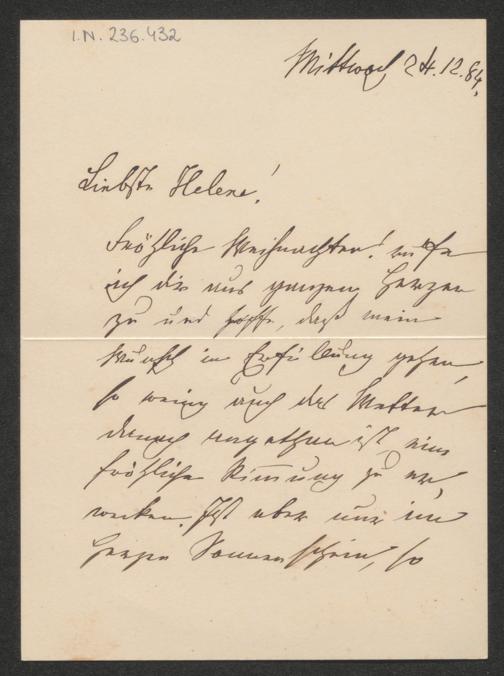 I.N. 236.432
Mittwoch 24.12.84.
Liebste Helene!
Fröhliche Weihnachten! rufe
ich dir aus ganzem Herzen
zu und hoffe, daß mein
Wunsch in Erfüllung gehen,
so wenig auch das Wetter
danach angethan ist, eine
fröhliche Stimmung zu er,
wecken. Ist aber nur im
Herzen Sonnenschein, so